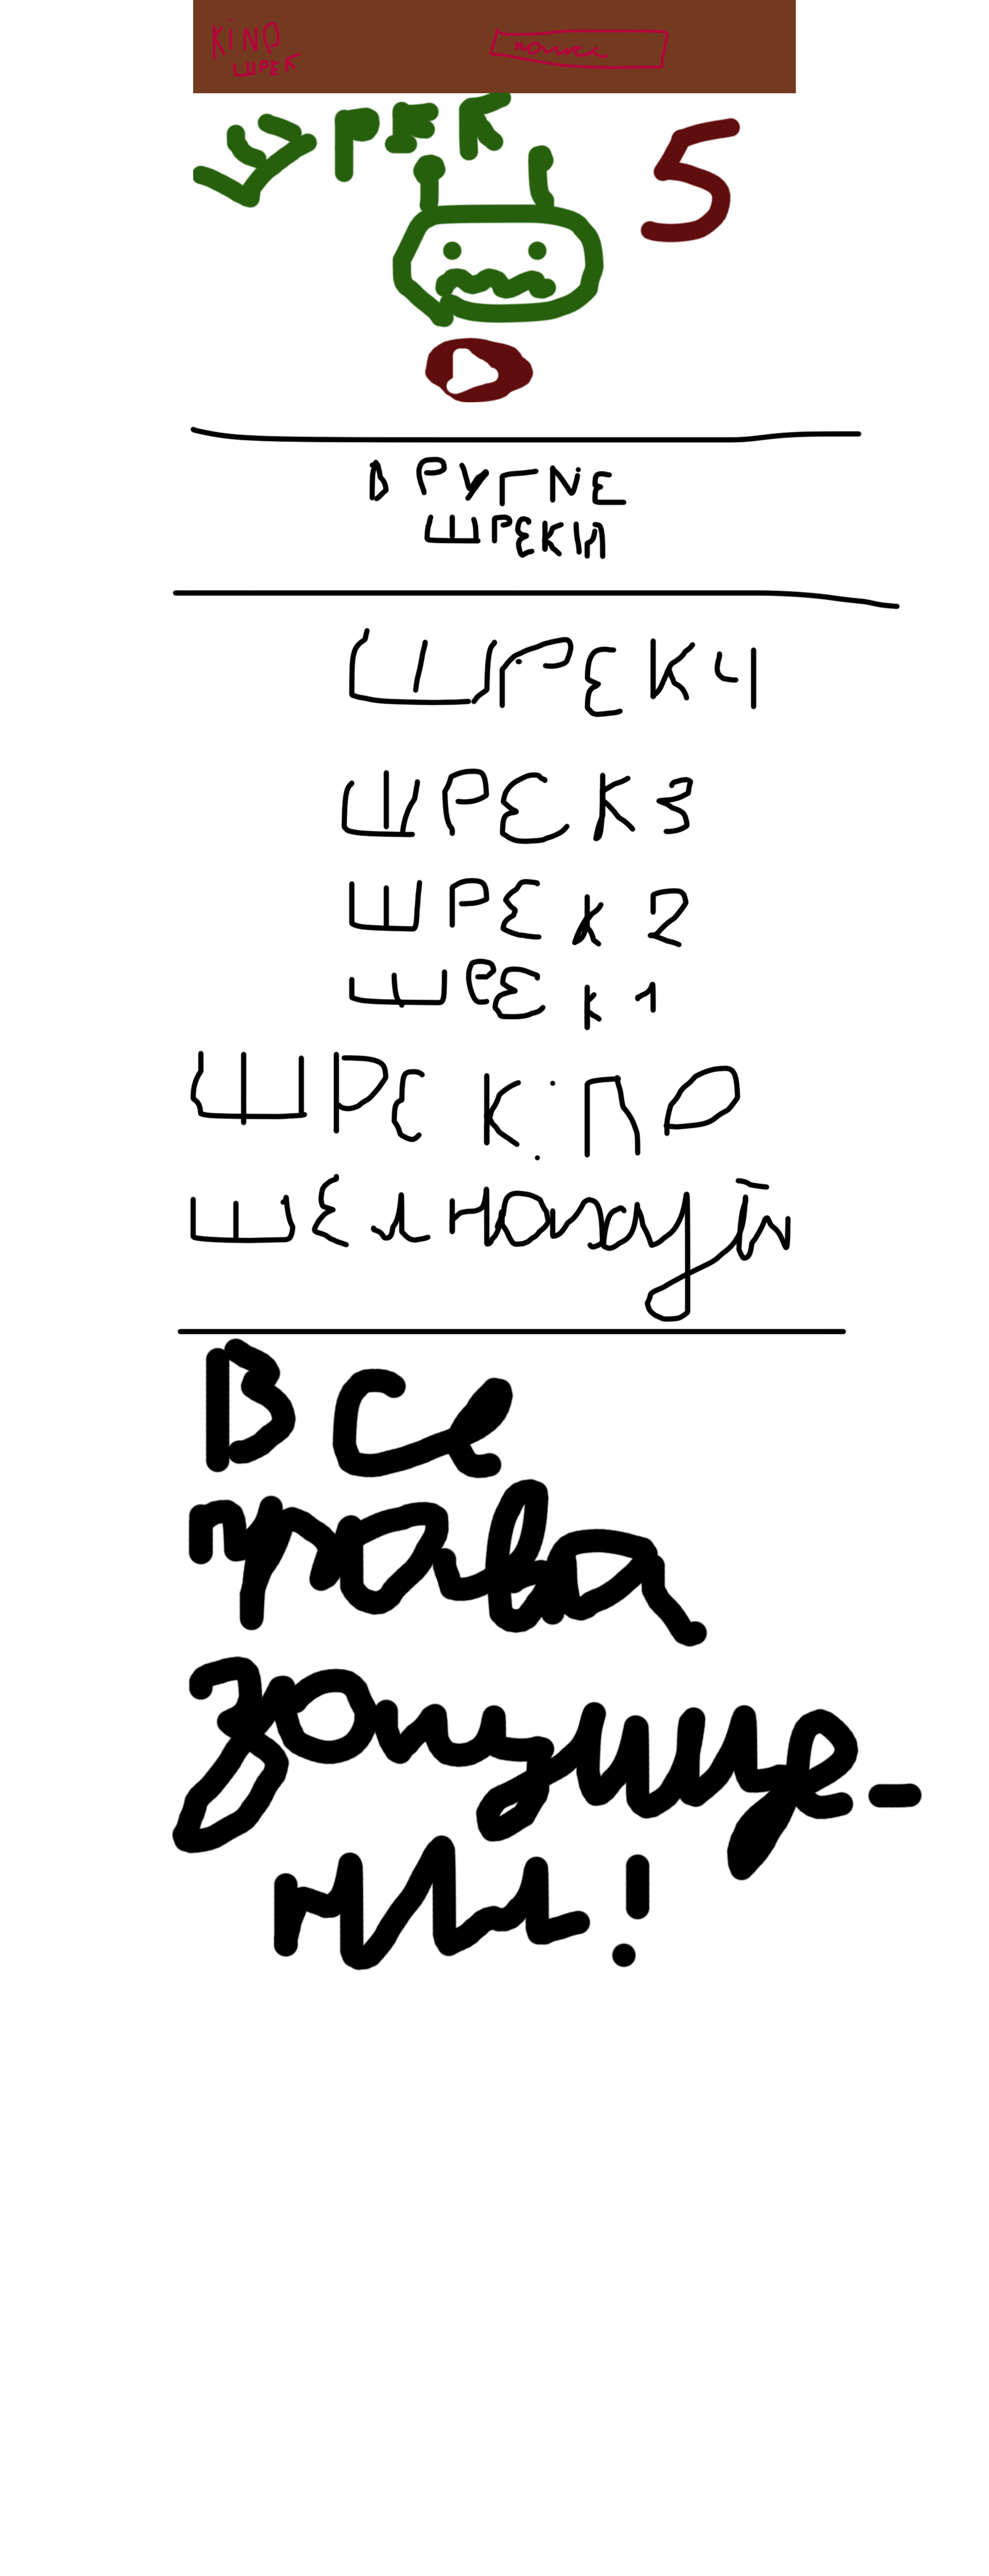 KiNO
ШРЕК
поиск
ШРЕК 5
ДРУГИЕ
ШРЕКИ
ШРЕК 4
ШРЕК 3
ШРЕК 2
ШРЕК 1
ШРЕК:ПО
Все
права
защище-
ны!